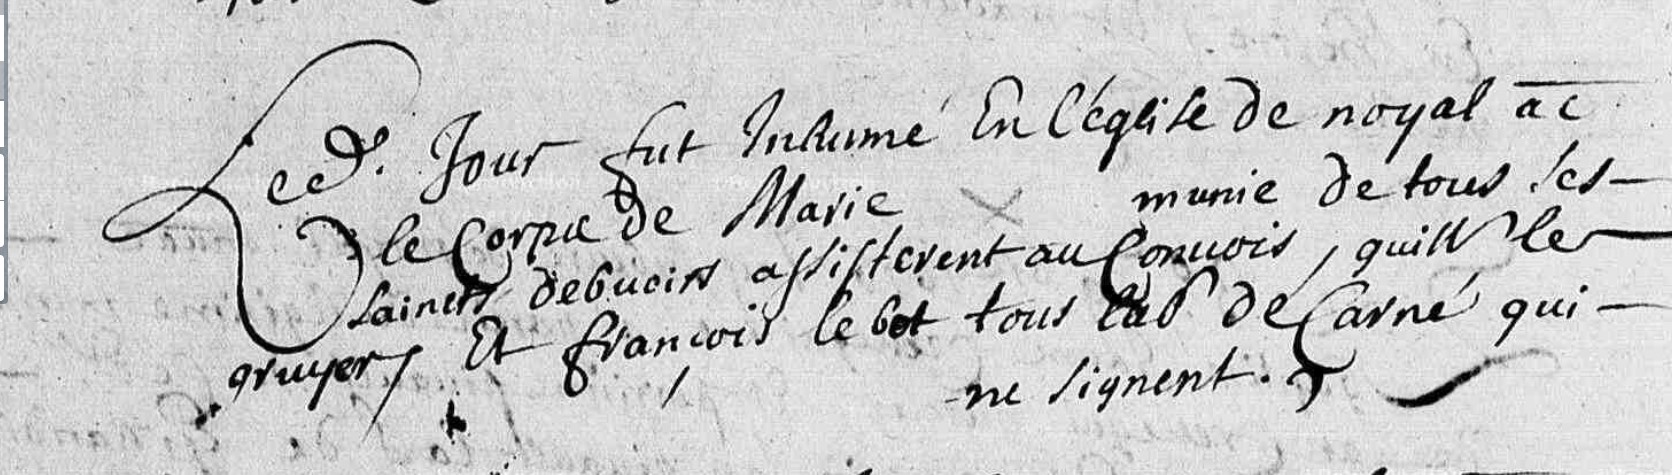 Led. Jour fut Inhumé En l'église de noyal ac
le Corps de Marie munie de tous ses
saincts debuoirs assisterent au Conuois, quill le
gruyer, Et françois le bot tous lab de Carné qui
ne signent.